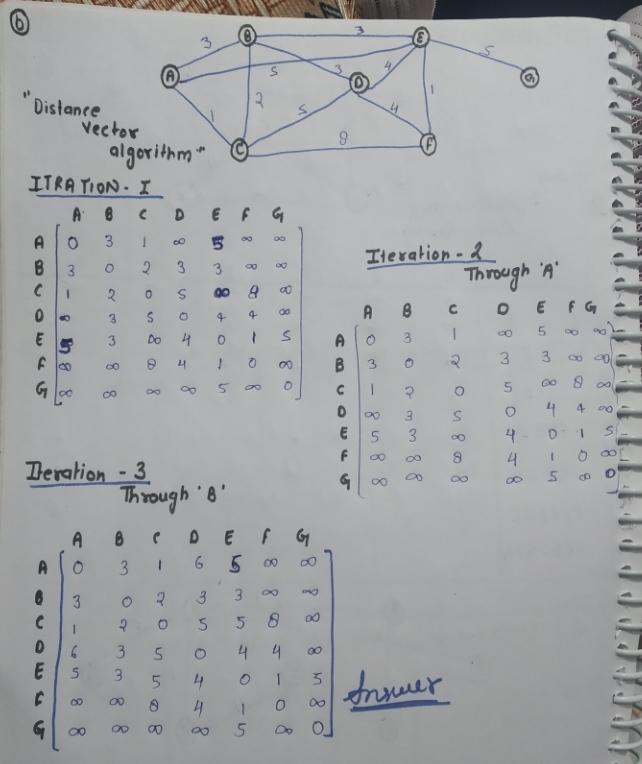 (b)
3 B 3 E
A 5 3 D 4 5 G
"Distance 1 2 5 4 1
Vector
algorithm" C 8 F
ITRATION - I
A B C D E F G
A 0 3 1 ∞ 5 ∞ ∞
B 3 0 2 3 3 ∞ ∞
C 1 2 0 5 ∞ 8 ∞
D ∞ 3 5 0 4 4 ∞
E 5 3 ∞ 4 0 1 5
F ∞ ∞ 8 4 1 0 ∞
G ∞ ∞ ∞ ∞ 5 ∞ 0
Iteration - 2
Through 'A'
A B C D E F G
A 0 3 1 ∞ 5 ∞ ∞
B 3 0 2 3 3 ∞ ∞
C 1 2 0 5 ∞ 8 ∞
D ∞ 3 5 0 4 4 ∞
E 5 3 ∞ 4 0 1 5
F ∞ ∞ 8 4 1 0 ∞
G ∞ ∞ ∞ ∞ 5 ∞ 0
Iteration - 3
Through 'B'
A B C D E F G
A 0 3 1 6 5 ∞ ∞
B 3 0 2 3 3 ∞ ∞
C 1 2 0 5 5 8 ∞
D 6 3 5 0 4 4 ∞
E 5 3 5 4 0 1 5
F ∞ ∞ 8 4 1 0 ∞
G ∞ ∞ ∞ ∞ 5 ∞ 0
Answer